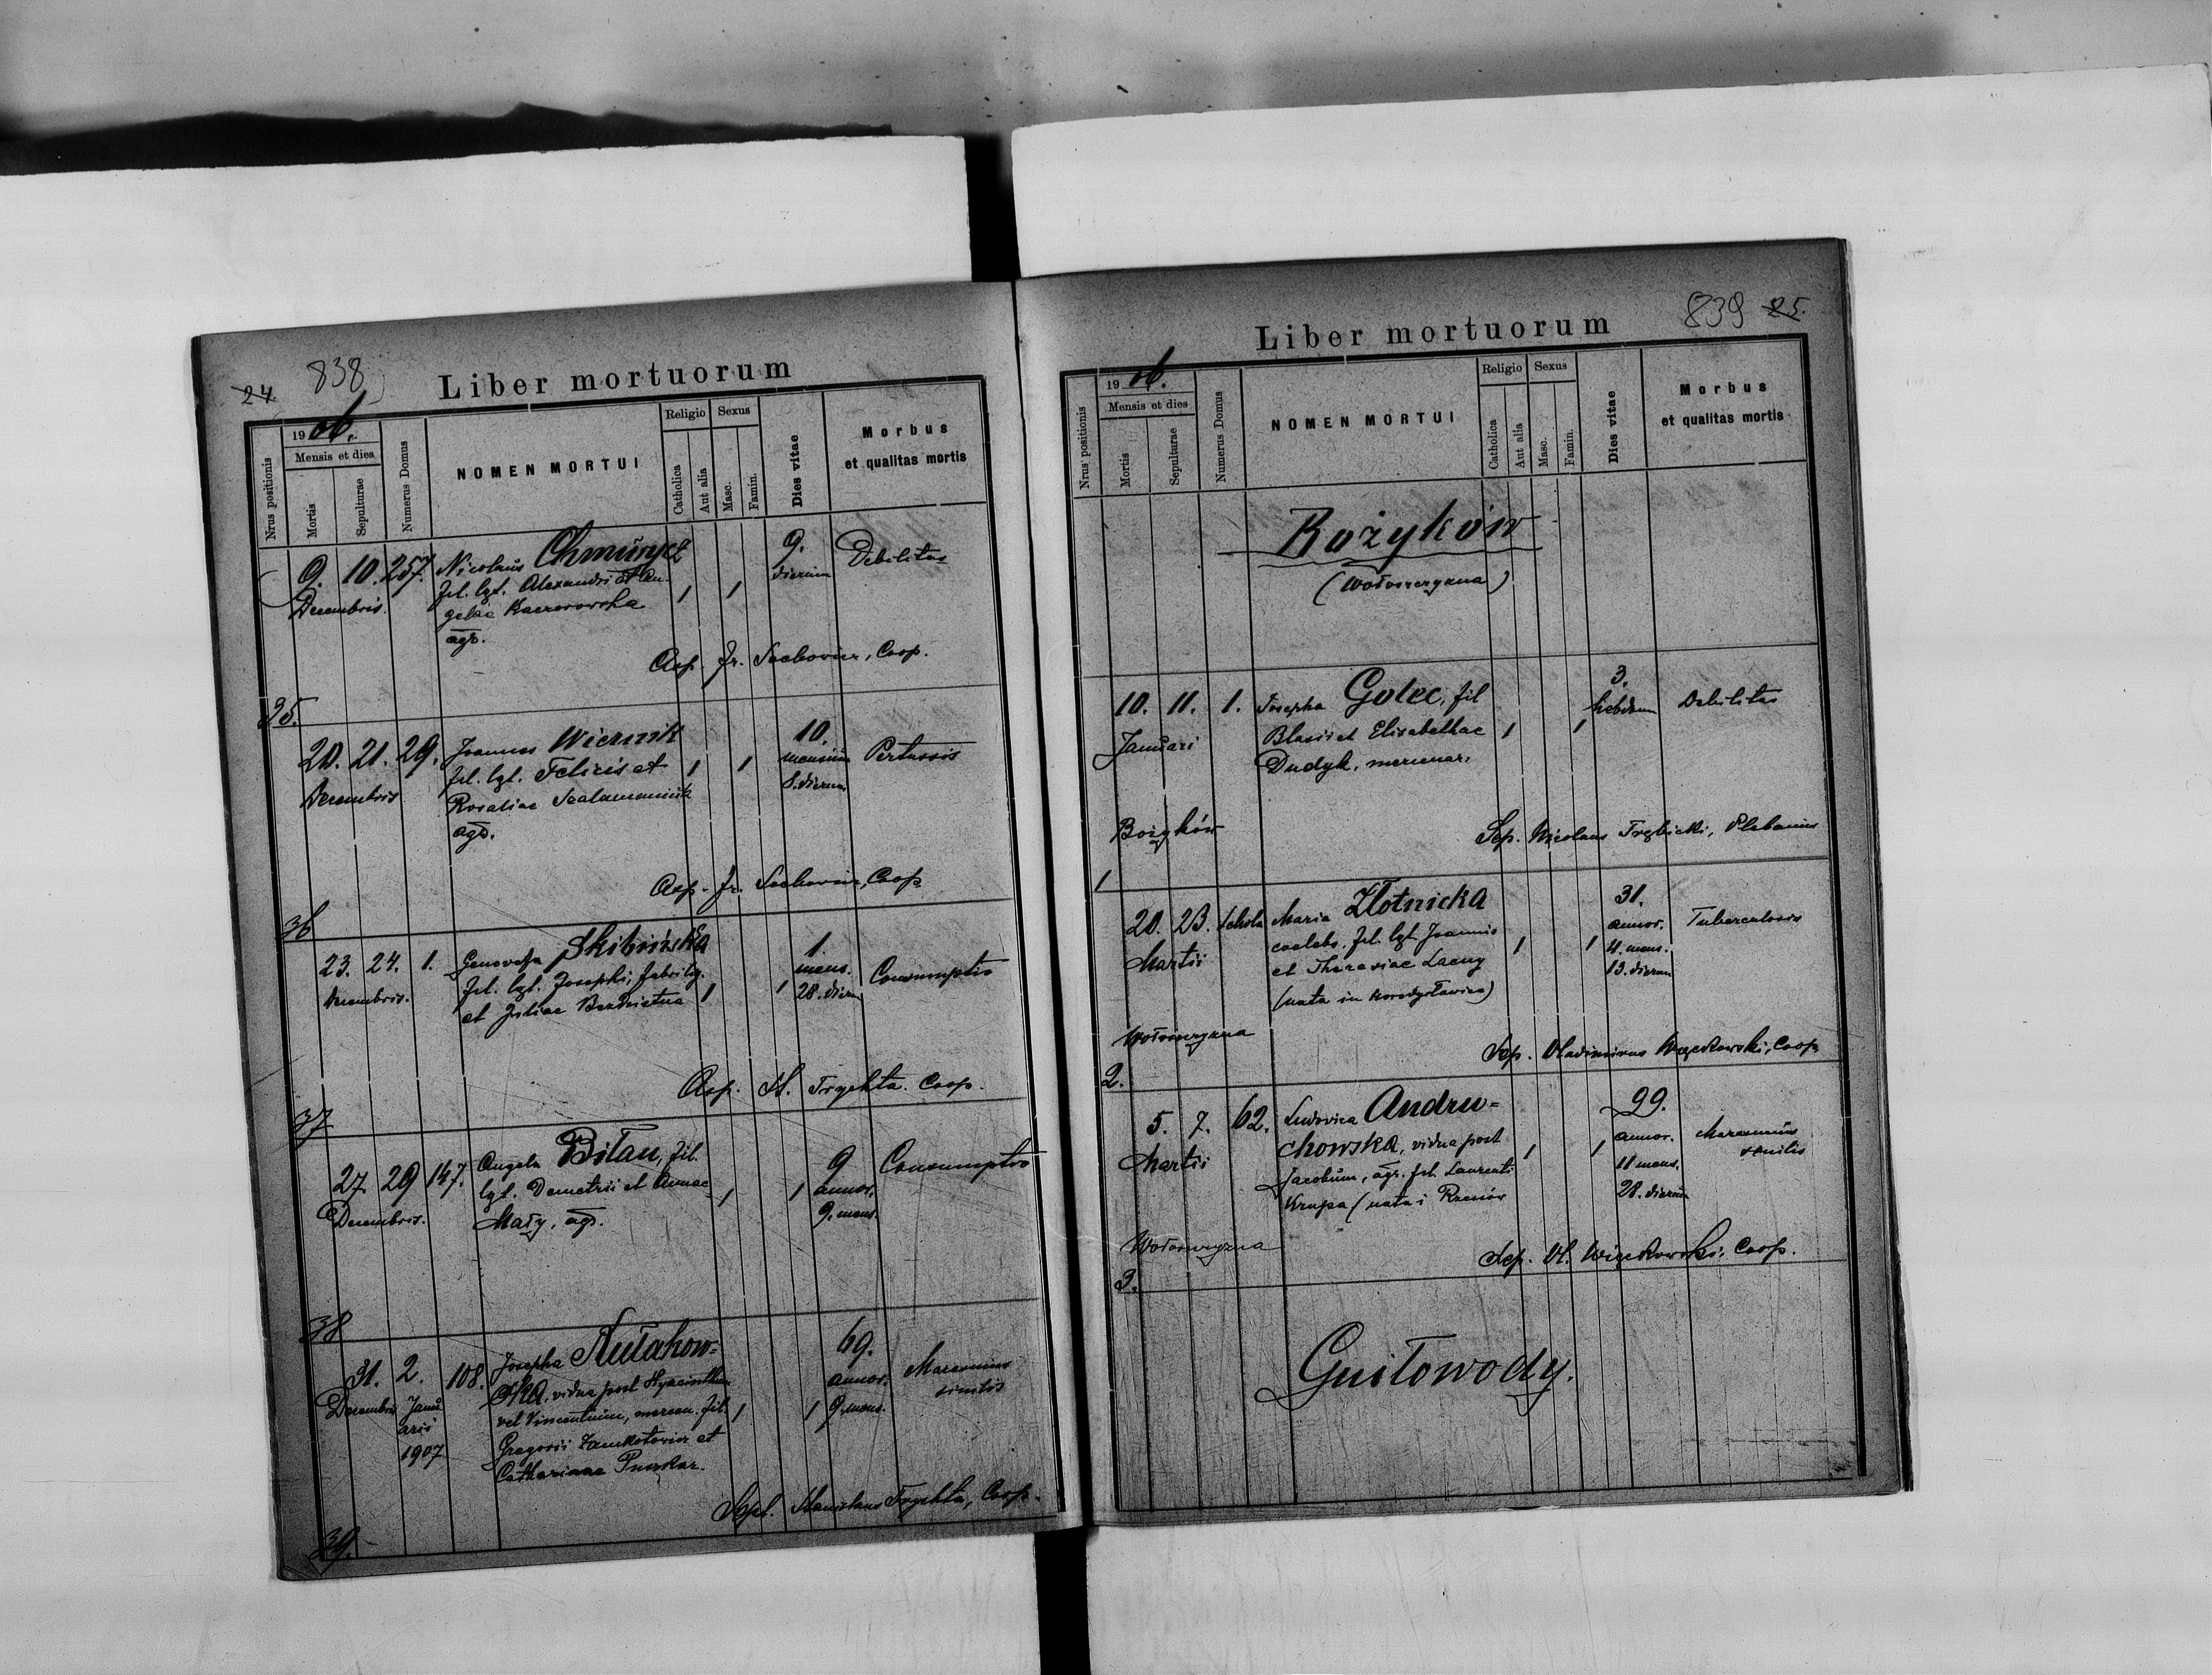 24. 838
Liber mortuorum
Nrus positionis
1906.
Mensis et dies
Mortis
Sepulturae
Numerus Domus
NOMEN MORTUI
Religio
Catholica
Aut alia
Sexus
Masc.
Famin.
Dies vitae
Morbus
et qualitas mortis
9. 10. 257. Nicolaus Chmurycz 9. Debilitas
Decembris. fil. lgt. Alexandri et An- 1 1 dierum
gelae Kaczorowska
agr.
Asp. Fr. Sochowicz, Coop.
35.
20. 21. 29. Joannes Wiernik 10. Pertussis
Decembris fil. lgt. Felicis et 1 1 mensium
Rosaliae 8. dierum
agr.
Asp. Fr. Sochowicz, Coop
36
23. 24. 1. Genovefa Skibińska 1. Consumptio
Decembris. fil. lgt. Josephi, fabri lig. 1 1 mens.
et Juliae 28. dierum
Asp. St. Trychta. Coop.
37
27 29 147. Angela Biłan, fil. 9 Consumptio
Decembris. lgt. Demetrii et Annae 1 1 annor.
Mały, agr. 9. mens.
38
31. 2. 108. Josepha 69. Marasmus
Decembris Januarii ska, vidua post Hyacinthum annor. senilis
1907 vel Vincentium, mercen. fil 1 1 9. mens.
Gregorii et
Catharinae Puszkar.
Sepl. Stanislaus Trychta, Coop.
39.
839 25.
Liber mortuorum
Nrus positionis
1906.
Mensis et dies
Mortis
Sepulturae
Numerus Domus
NOMEN MORTUI
Religio
Catholica
Aut alia
Sexus
Masc.
Famin.
Dies vitae
Morbus
et qualitas mortis
Bożyków
(Wołoszczyzna)
10. 11. 1. Josepha Golec, fil 3. Debilitas
Januari Blasii et Elisabethae 1 1 hebdom
Dudyk, mercenar.
Bożyków
Sep. Nicolaus Trzbicki, Plebanus
1
20. 23. Schola Maria Złotnicka 31. Tuberculosis
Martii caelebs, fil. lgt Joannis 1 1 annor.
et Theresiae Lacny 4. mens.
(nata in 13. dierum
Wołoszczyzna
Sep. Vladimirus Więckowski, Coop
2.
5. 7. 62. Ludovica Andru= 99. Marasmus
Martii chowska, vidua post 1 1 annor. senilis
Jacobum, agr. fil. Laurenti 11 mens.
Krupa (nata i 28. dierum
Wołoszczyzna
Sep. Vl. Więckowski, Coop.
3.
Gniłowody.